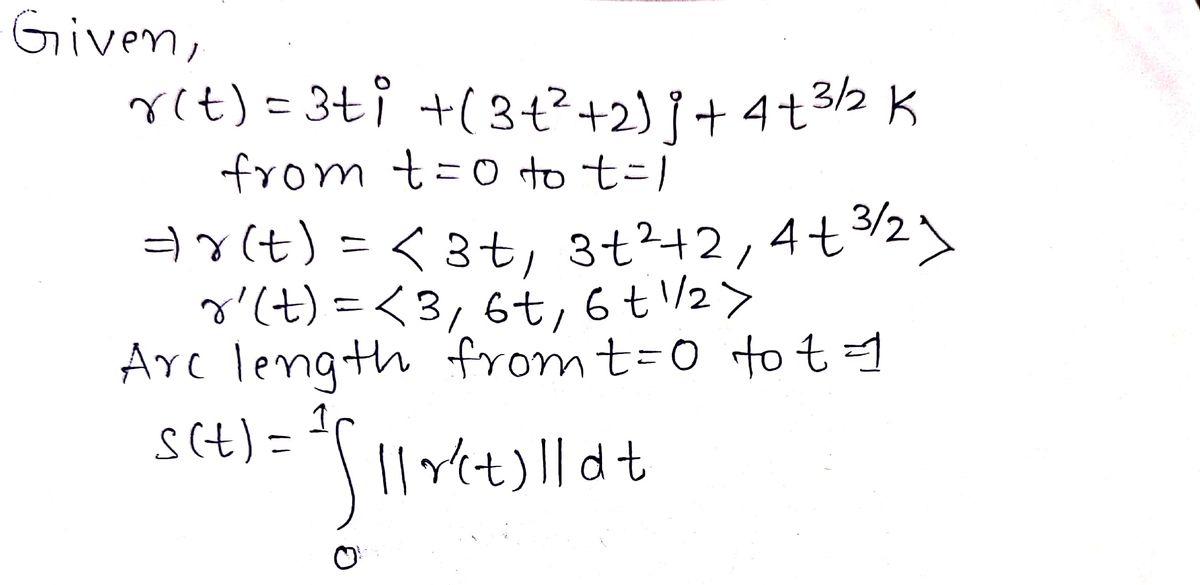 Given,
r(t) = 3ti + (3t²+2)j + 4t^3/2 K
from t=0 to t=1
⇒ r(t) = <3t, 3t²+2, 4t^3/2>
r'(t) = <3, 6t, 6t^1/2>
Arc length from t=0 to t=1
s(t) = ∫₀¹ ||r'(t)|| dt